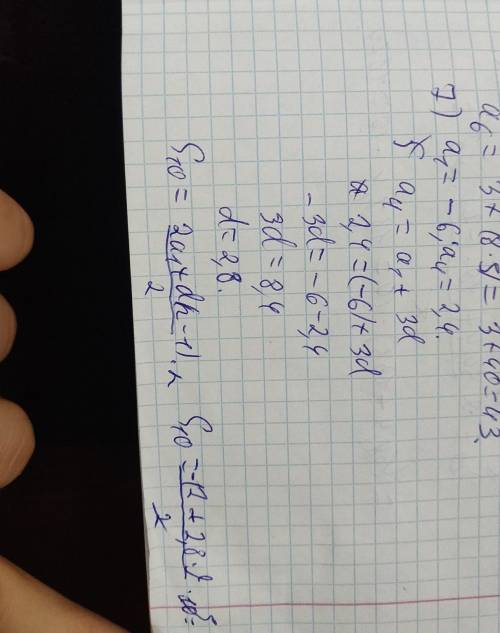 a₆ = 3 + 8·5 = 3 + 40 = 43.
7) a₁ = -6; a₄ = 2,4.
a₄ = a₁ + 3d
2,4 = (-6) + 3d
-3d = -6 - 2,4
3d = 8,4
d = 2,8.
S₁₀ = (2a₁ + d(n - 1))/2 · n S₁₀ = (-12 + 2,8·